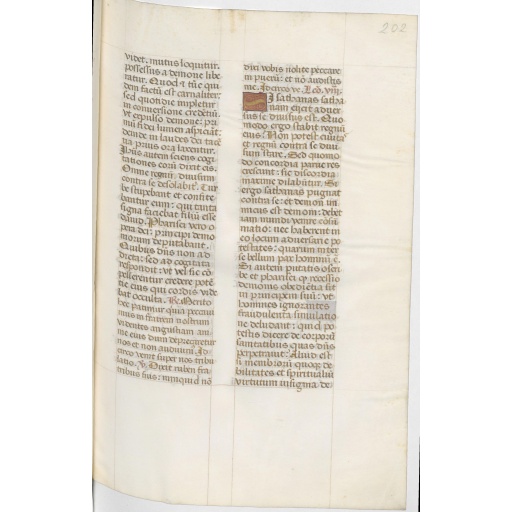 202
videt. mutus loquitur.
possessus a demone libe
ratur. Quod et tūc qui
dem factū est carnaliter:
sed quotidie impletur
in conversione credētiū.
ut expulso demone: pri
mū fidei lumen aspiciāt:
deinde in laudes dei tacē
tia prius ora laxentur.
Ihūs autem sciens cogi
tationes eorū dixit eis.
Omne regnū divisum
contra se desolabit. Tur
be stupebant et confite
bantur eum: qui tanta
signa faciebat filiū esse
david. Pharisei vero o
pera dei: principi demo
niorum deputabant.
Quibus dn̄s non ad
dicta: sed ad cogitata
respondit: ut vel sic cō
pellerentur credere potē
tie eius qui cordis vide
bat occulta. R. Merito
hec patimur quia peccavi
mus in fratrem nostrum
videntes angustiam ani
me eius dum deprecaretur
nos et non audivim̄. Id
circo venit super nos tribu
latio. V. Dixit ruben fra
tribus suis: nunquid nō
dixi vobis nolite peccare
in puerū: et nō audistis
me. Idcirco ve. Leō. viij.
SI sathanas satha
nam eijcit adver
sus se divisus est. Quo
modo ergo stabit regnū
eius: Non potest civitas
et regnū contra se divi
sum stare. Sed quomo
do concordia parve res
crescunt: sic discordia
maxime dilabūtur. Si
ergo sathanas pugnat
contra se: et demon ini
micus est demoni: debet
iam mundi venire cōsū
matio: nec haberent in
eo locum adversarie po
testates: quarum inter
se bellum pax hominū ē.
Si autem putatis o scri
be et pharisei q̄ recessio
demonis obediētia sit
in principem suū: ut
homines ignorantes
fraudulenta simulatio
ne deludant: quid po
testis dicere de corporū
sanitatibus quas dn̄s
perpetravit: Aliud est
si membrorū quoq; de
bilitates et spiritualiū
virtutum insignia de